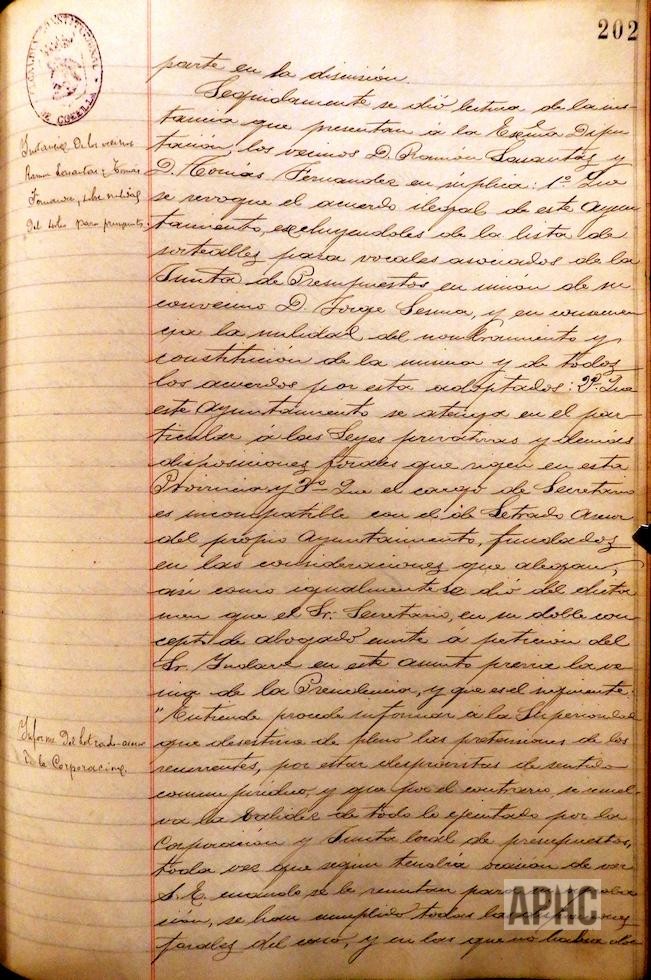 202
ALCALDIA CONSTITUCIONAL
DE CORELLA
parte en la discusión.
Seguidamente se dió lectura de la ins-
tancia que presentan á la Excma Dipu
tación los vecinos D. Ramon y
D. Tomás Fernandez en súplica: 1º. Que
se revoque el acuerdo ilegal de este Ayun
tamiento, excluyendoles de la lista de
sorteables para vocales asociados de la
Junta de Presupuestos en unión de su
convecino D. Jorge Sesma, y en consecuen
cia la nulidad del nombramiento y
constitución de la misma y de todos
los acuerdos por esta adoptados: 2º. Que
este Ayuntamiento se atenga en el par-
ticular á las Leyes privativas y demás
disposiciones forales que rigen en esta
Provincia y 3º Que el cargo de Secretario
es incompatible con el de Letrado Asesor
del propio Ayuntamiento, fundados
en las consideraciones que alegan;
así como igualmente se dió del dicta
men que el Sr. Secretario, en su doble con
cepto de abogado emite a petición del
Sr. en este asunto previa la ve
nia de la Presidencia, y que es el siguiente:
"Entiende procede informar á la Superioridad
que desestime de pleno las pretensiones de los
recurrentes, por estar desprovistas de sentido
comun juridico, y que por el contrario, se resuel-
va la validez de todo lo ejecutado por la
Corporación y Junta local de presupuestos,
toda vez que según tendrá ocasión de ver
S. E. cuando se le remitan para su aproba
ción, se han cumplido todas las disposiciones
forales del caso, y en las que no habia
Instancia de los vecinos
Ramon y Tomas
Fernandez, sobre nulidad
del presupuesto.
Informe del Letrado-asesor
de la Corporacion.
APHC